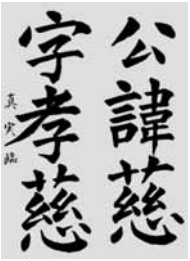 公諱慈
字孝慈
真実臨